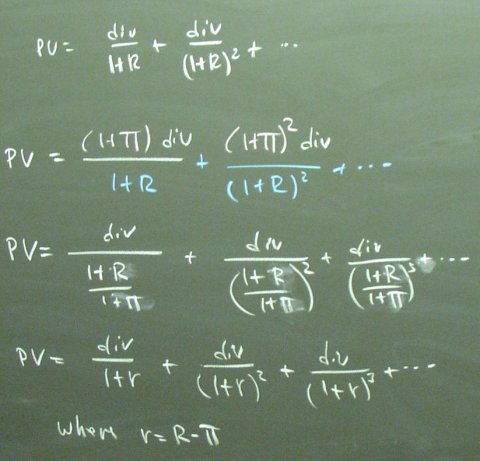 PV = div/(1+R) + div/(1+R)² + ...
PV = (1+π) div/(1+R) + (1+π)² div/(1+R)² + ...
PV = div/((1+R)/(1+π)) + div/((1+R)/(1+π))² + div/((1+R)/(1+π))³ + ...
PV = div/(1+r) + div/(1+r)² + div/(1+r)³ + ...
where r = R-π